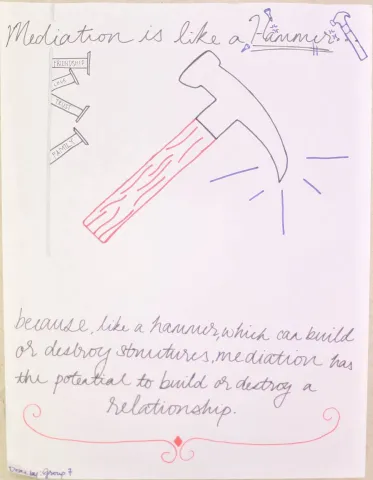 Mediation is like a Hammer
FRIENDSHIP
LOVE
TRUST
FAMILY
because, like a hammer, which can build
or destroy structures, mediation has
the potential to build or destroy a
relationship.
Done by: Group 7